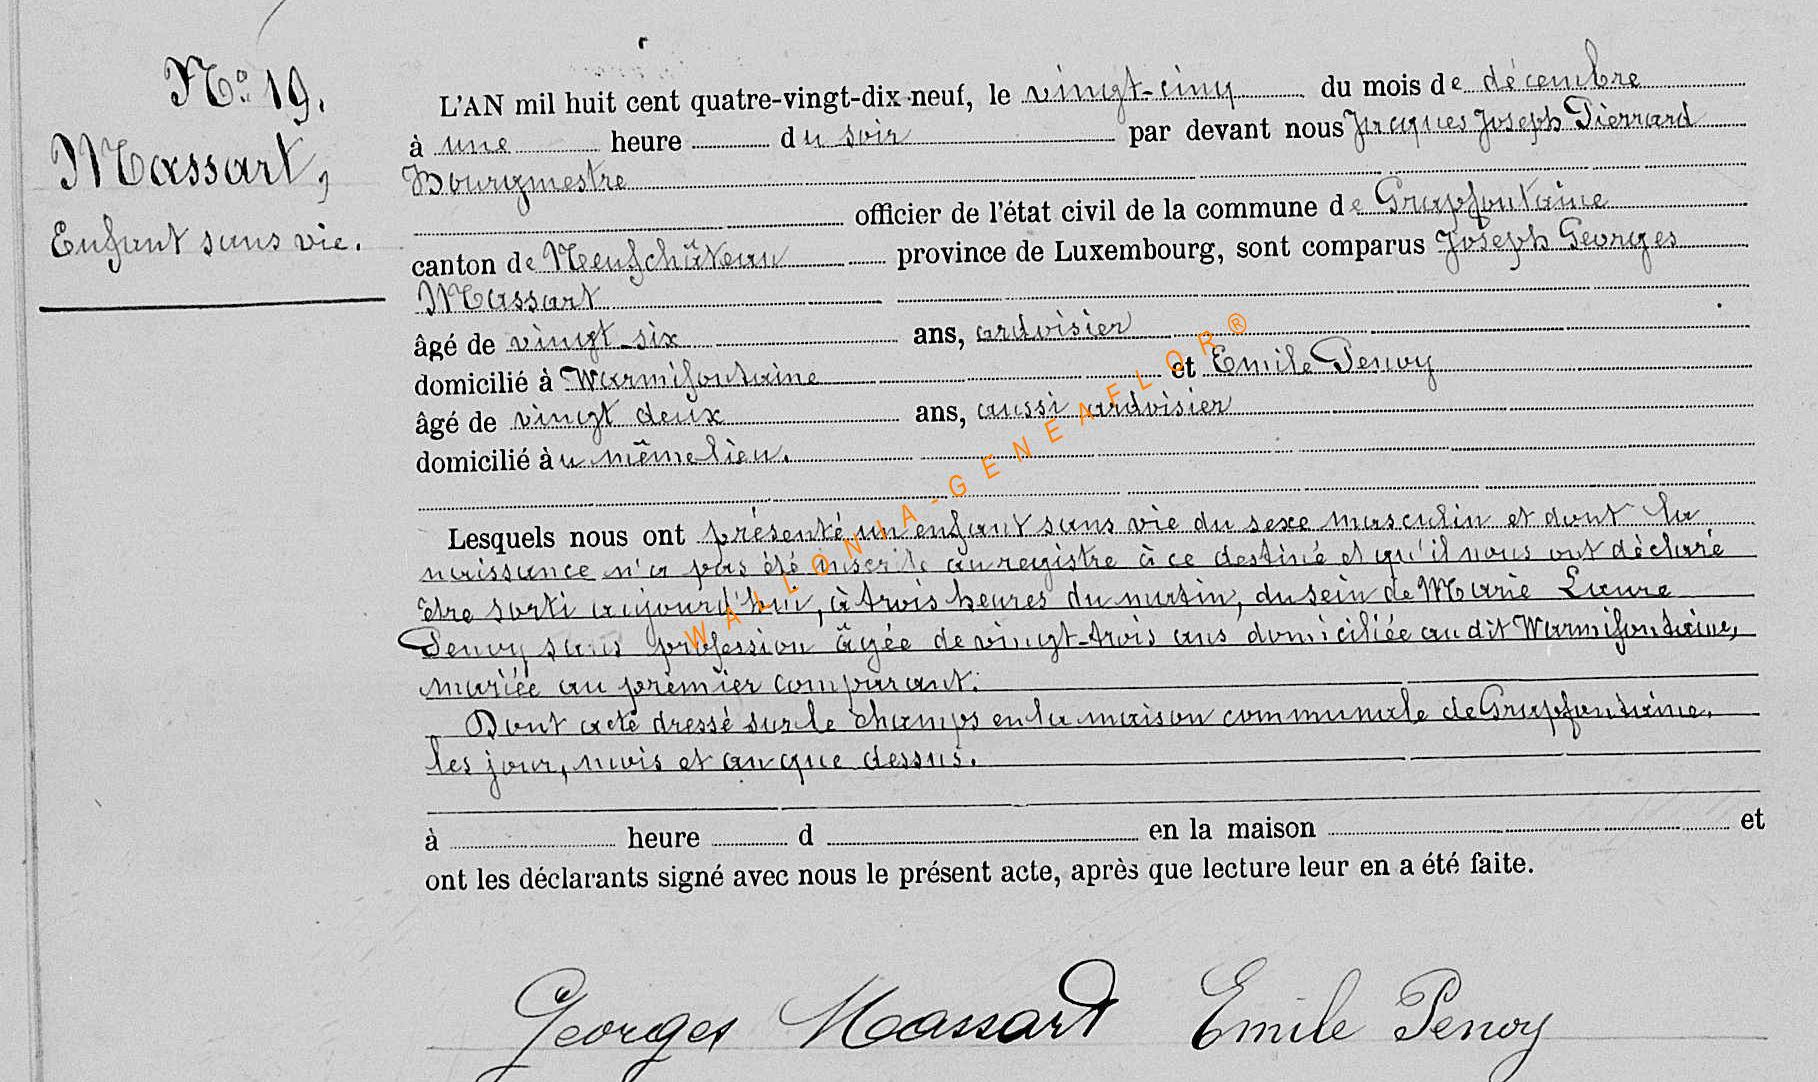 N° 19.
Massart,
Enfant sans vie.
L'AN mil huit cent quatre-vingt-dix-neuf, le vingt-cinq du mois de décembre
à une heure du soir par devant nous Jacques Joseph Pierrard
Bourgmestre
officier de l'état civil de la commune de Grapfontaine
canton de Neufchâteau province de Luxembourg, sont comparus Joseph Georges
Massart
âgé de vingt-six ans, ardoisier
domicilié à Warmifontaine et Emile Penoy
âgé de vingt deux ans, aussi ardoisier
domicilié au même lieu.
Lesquels nous ont présenté un enfant sans vie du sexe masculin et dont la
naissance n'a pas été inscrite au registre à ce destiné et qu'il nous ont déclaré
être sorti aujourd'hui, à trois heures du matin, du sein de Marie Laure
Penoy sans profession âgée de vingt-trois ans domiciliée au dit Warmifontaine,
mariée au premier comparant.
Dont acte dressé sur le champs en la maison communale de Grapfontaine,
les jour, mois et an que dessus.
à heure d en la maison et
ont les déclarants signé avec nous le présent acte, après que lecture leur en a été faite.
Georges Massart Emile Penoy
WALLONIA-GENEAFLOR®